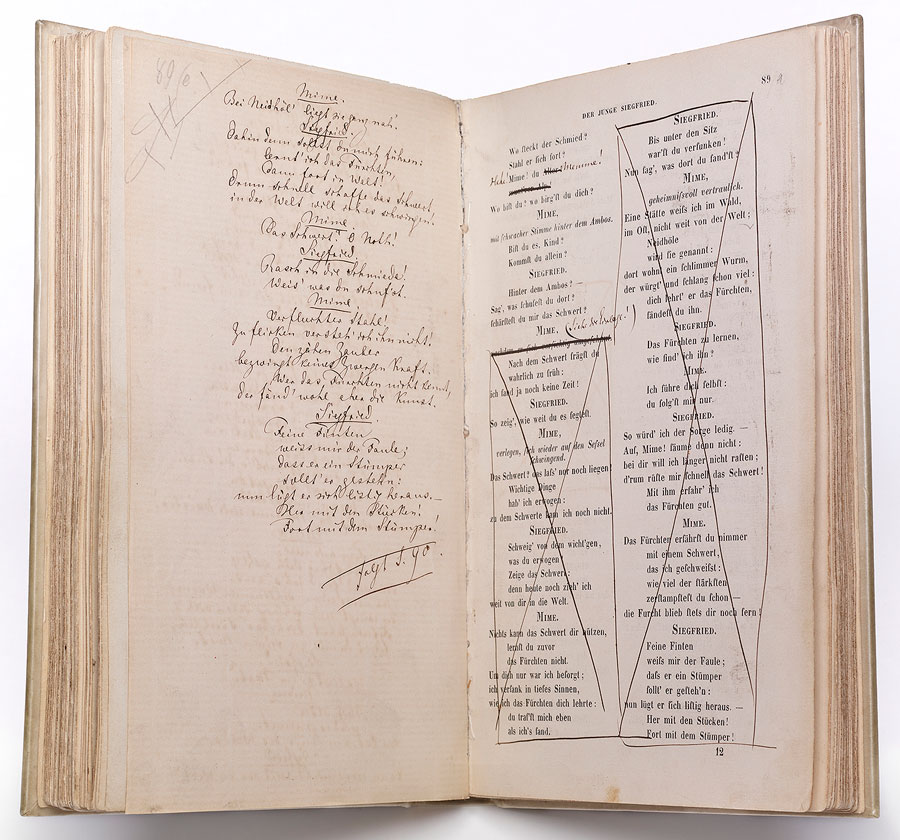 89/b
Mime.
Bei Neidhöl' liegt sie ganz nah'.
Siegfried.
Dahin denn sollst du mich führen:
lernt' ich das Fürchten,
dann fort in die Welt!
Drum schnell schaffe das Schwert,
in der Welt will ich es schwingen!
Mime
Das Schwert? O Noth!
Siegfried.
Rasch in die Schmiede!
Weis' was du schuf'st.
Mime
Verfluchter Stahl!
Zu flicken versteh' ich ihn nicht.
Den zähen Zauber
bezwingt keines Zwergen Kraft.
Wer das Fürchten nicht kennt,
der fänd' wohl eher die Kunst.
Siegfried.
Feine Finten
weiss mir der Faule;
dass er ein Stümper
sollt' er gestehn:
nun lügt er sich listig heraus. —
Her mit den Stücken!
Fort mit dem Stümper!
folgt S. 90.
89 a
DER JUNGE SIEGFRIED.
Wo steckt der Schmied?
Stahl er sich fort?
Hehe! Mime! du Memme!
Wo bist du? wo birg'st du dich?
MIME,
mit schwacher Stimme hinter dem Ambos.
Bist du es, Kind?
Kommst du allein?
SIEGFRIED.
Hinter dem Ambos? —
Sag', was schufest du dort?
schärftest du mir das Schwert?
MIME,
Nach dem Schwert frägst du
wahrlich zu früh:
ich fand ja noch keine Zeit!
SIEGFRIED.
So zeig', wie weit du es fegtest.
MIME,
verlegen, sich wieder auf den Sessel
schwingend.
Das Schwert? das lass' nur noch liegen!
Wichtige Dinge
hab' ich erwogen:
zu dem Schwerte kam ich noch nicht.
SIEGFRIED.
Schweig' von dem wicht'gen,
was du erwogen!
Zeige das Schwert:
denn heute noch zieh' ich
weit von dir in die Welt.
MIME.
Nichts kann das Schwert dir nützen,
lernst du zuvor
das Fürchten nicht.
Um dich nur war ich besorgt;
ich versank in tiefes Sinnen,
wie ich das Fürchten dich lehrte:
du traf'st mich eben
als ich's fand.
SIEGFRIED.
Bis unter den Sitz
war'st du versunken!
Nun sag', was dort du fand'st?
MIME,
geheimnissvoll vertraulich.
Eine Stätte weiss ich im Wald,
im Ost, nicht weit von der Welt;
Neidhöle
wird sie genannt:
dort wohnt ein schlimmer Wurm,
der würgt' und schlang schon viel:
dich lehrt' er das Fürchten,
fändest du ihn.
SIEGFRIED.
Das Fürchten zu lernen,
wie find' ich ihn?
MIME.
Ich führe dich selbst:
du folg'st mir nur.
SIEGFRIED.
So würd' ich der Sorge ledig. —
Auf, Mime! säume denn nicht:
bei dir will ich länger nicht rasten;
d'rum rüste mir schnell das Schwert!
Mit ihm erfahr' ich
das Fürchten gut.
MIME.
Das Fürchten erfährst du nimmer
mit einem Schwert,
das ich geschweisst:
wie viel der stärksten
zerstampftest du schon —
die Furcht blieb stets dir noch fern!
SIEGFRIED.
Feine Finten
weiss mir der Faule;
dass er ein Stümper
sollt' er gesteh'n:
nun lügt er sich listig heraus. —
Her mit den Stücken!
Fort mit dem Stümper!
12